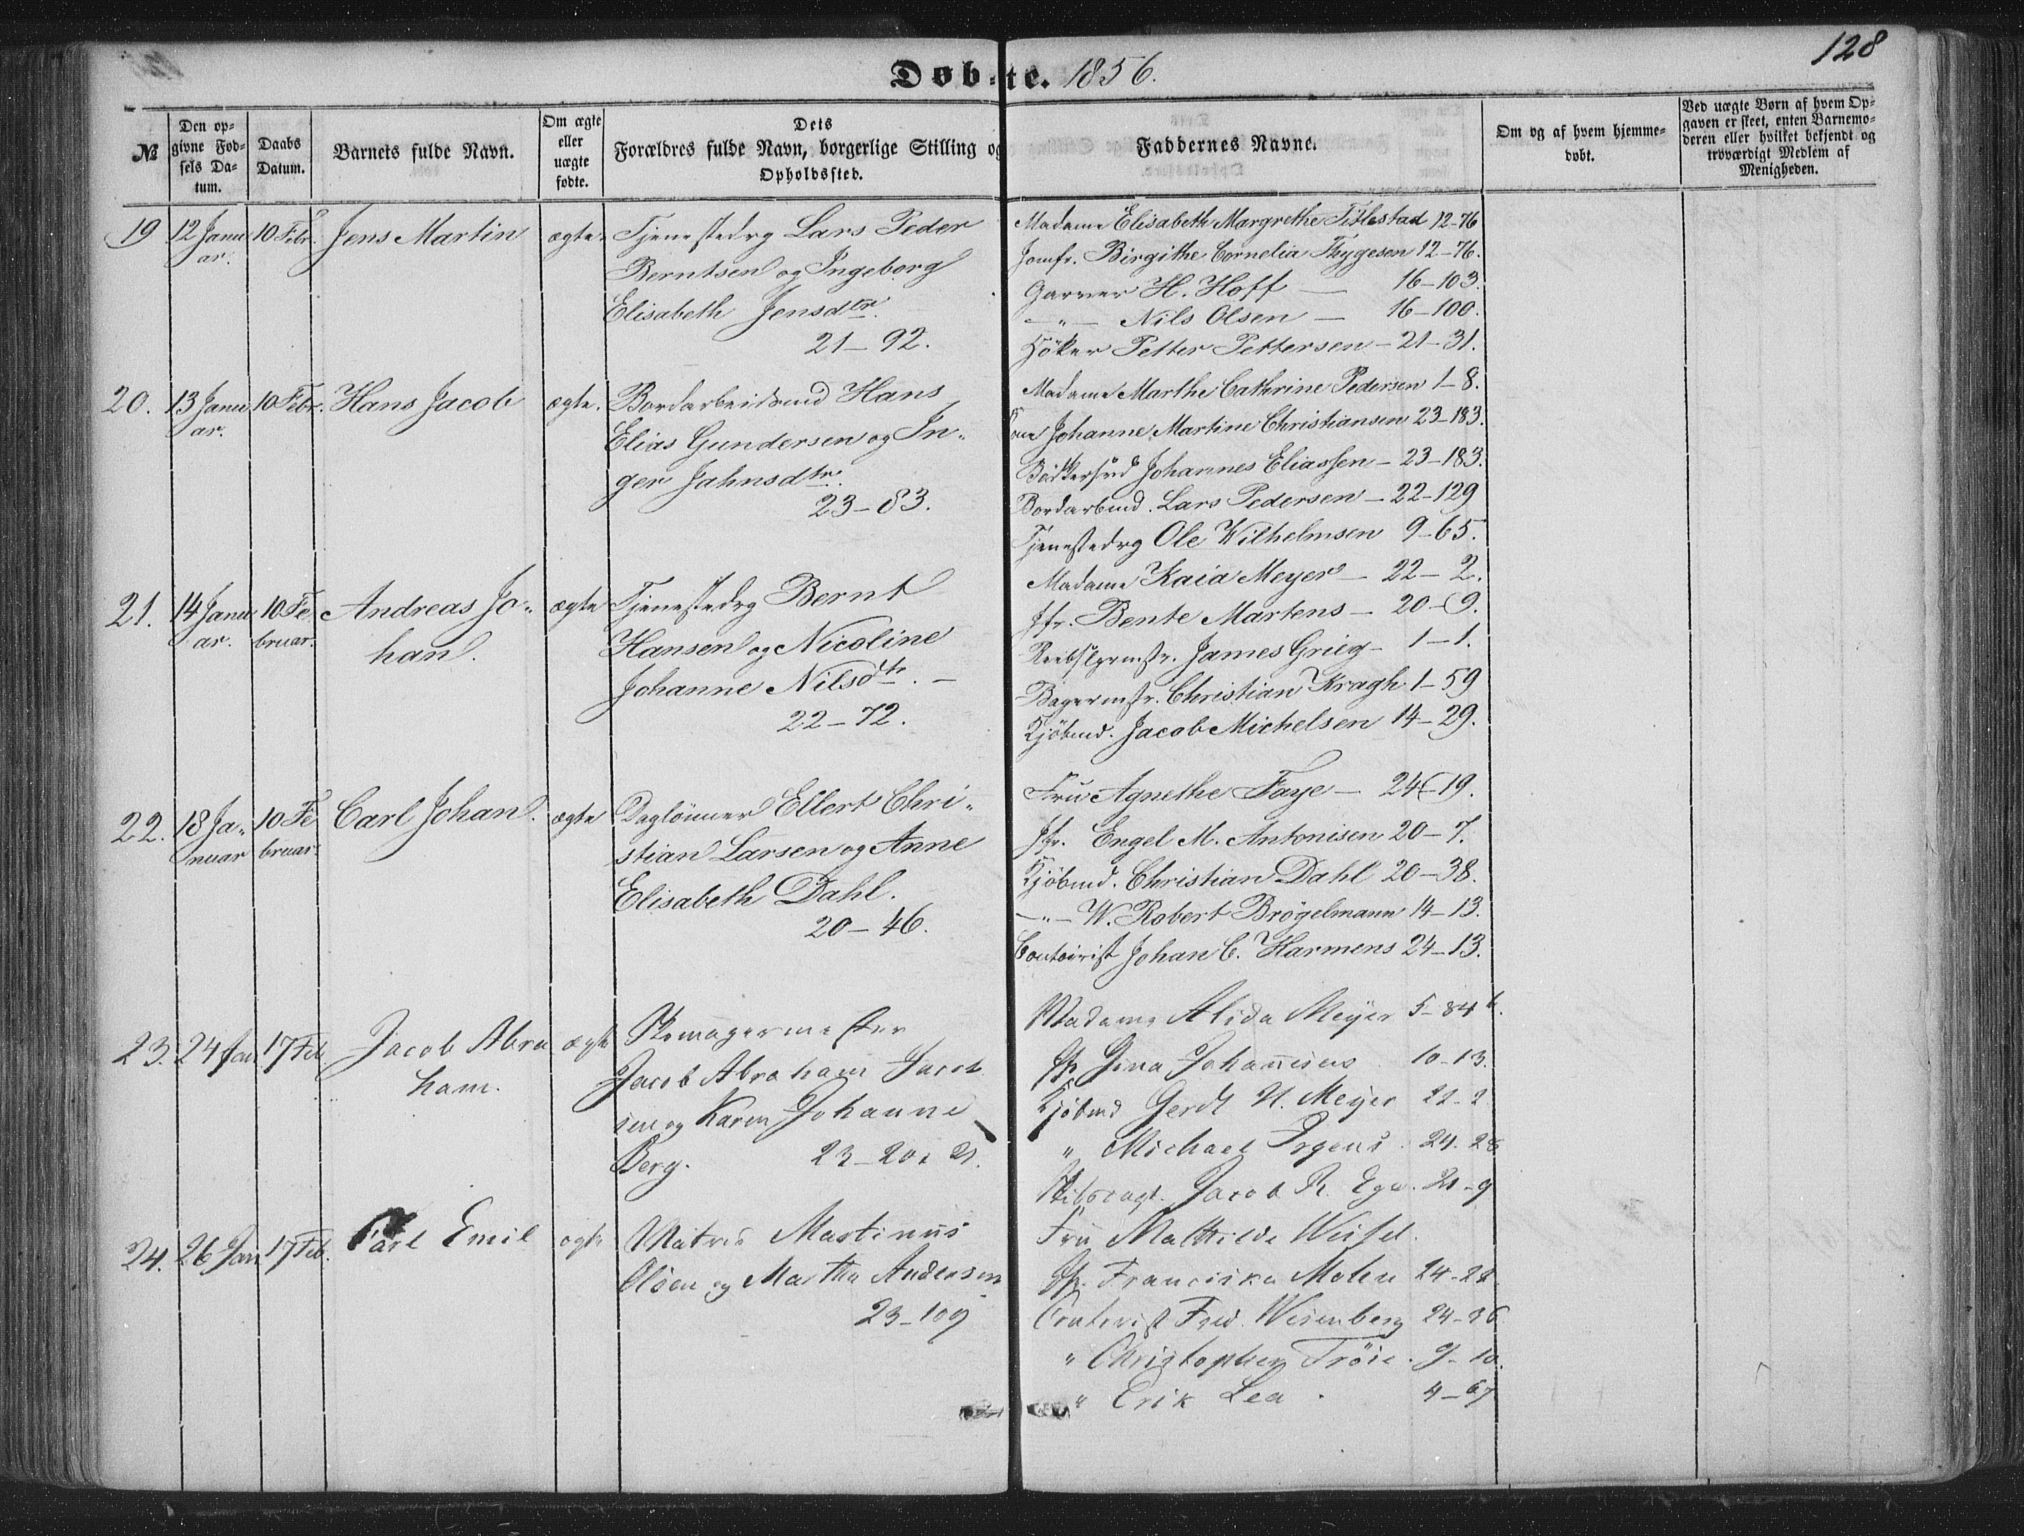 128
Døbte. 1856.
№
Den opgivne Fødsels Datum.
Daabs Datum.
Barnets fulde Navn.
Om ægte eller uægte fødte.
Dets Forældres fulde Navn, borgerlige Stilling og Opholdssted.
Faddernes Navne.
Om og af hvem hjemmedøbt.
Ved uægte Børn af hvem Opgaven er skeet, enten Barnemoderen eller hvilket bekjendt og troværdigt Medlem af Menigheden.
19 12 Janu 10 Febr. Jens Martin ægte. Tjenestedrg Lars Peder
ar.
Berntsen og Ingeborg
Elisabeth Jensdtr.
21–92.
Madame Elisabeth Margrethe Titlestad 12–76
Jomfr. Birgithe Cornelia Thygesen 12–76.
Garver H. Hoff — 16–103.
–"– Nils Olsen — 16–100.
Høker Petter Pettersen – 21–31.
20. 13 Janu 10 Febr. Hans Jacob ægte. Bordarbeidsmd Hans
ar.
Elias Gundersen og In-
ger Jahnsdtr.
23–83.
Madame Marthe Cathrine Pedersen 1–8.
Kone Johanne Martine Christiansen 23–183.
Bødkersvd Johannes Eliassen – 23–183.
Bordarbmd. Lars Pedersen – 22–129
Tjenestedrg Ole Wilhelmsen 9–65.
21. 14 Janu 10 Fe Andreas Jo- ægte Tjenestedrg Bernt
ar. bruar. han.
Hansen og Nicoline
Johanne Nilsdtr. –
22–72.
Madame Kaia Meyer – 22–2.
Jfr. Bente Martens – 20–9.
Reebslgrmstr. James Grieg – 1–1.
Bagermstr. Christian Kragh 1–59
Kjøbmd. Jacob Michelsen 14–29.
22. 18 Ja- 10 Fe Carl Johan. ægte Daglønner Ellert Chri-
nuar bruar.
stian Larsen og Anne
Elisabeth Dahl.
20–46.
Fru Agnethe Faye – 24–19.
Jfr. Engel M. Antonisen 20–7.
Kjøbmd. Christian Dahl 20–38.
–"– W. Robert Brøgelmann 14–13.
Contoirist Johan C. Harmens 24–13.
23. 24 Jan 17 Feb Jacob Abra ægte Skomagermester
ham.
Jacob Abraham Jacob
sen og Karen Johanne
Berg. 23–20 & 21.
Madame Alida Meyer 5–84 b.
Jfr Gina Johannesen 10–13.
Kjøbmd Gerdt N. Meyer 22–2
" Michael Irgens. 24–28
Jacob R. 21–9
24. 26 Jan 17 Feb. Carl Emil ægte Matros Martinus
Olsen og Marthe Andersen
23–109
Fru Mathilde
Jfr. Franciska 24–28
Contorist Fred. Wesenberg 24–36
" Christopher Trøie. 9–10.
" Erik Lea. 4–67